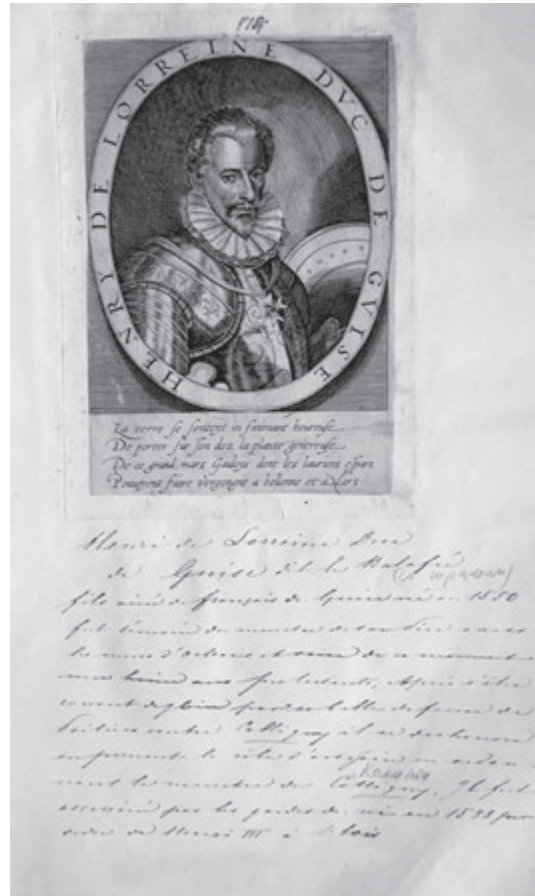 HENRY DE LORREINE DVC DE GVISE
La terre se
De porter sur son dos la plante genereuse
De ce grand mars Gaulois dont les lauriers
faire Vergongne a bellone et a Mars
Henri de Lorreine Duc
de Guise dit le Balafré
fils ainé de François de Guise né en 1550
fut témoin du meurtre de son Père sous
les murs d'Orléans et de ce moment
une haine aux protestants, Après s'être
couvert de gloire par sa belle defense de
Poitiers contre Colligny il se deshonora
en prenant le rôle d'assassin en
le meurtre de Colligny. Il fut
assassiné par les gardes du roi en 1588 par
ordre de Henri III à Blois